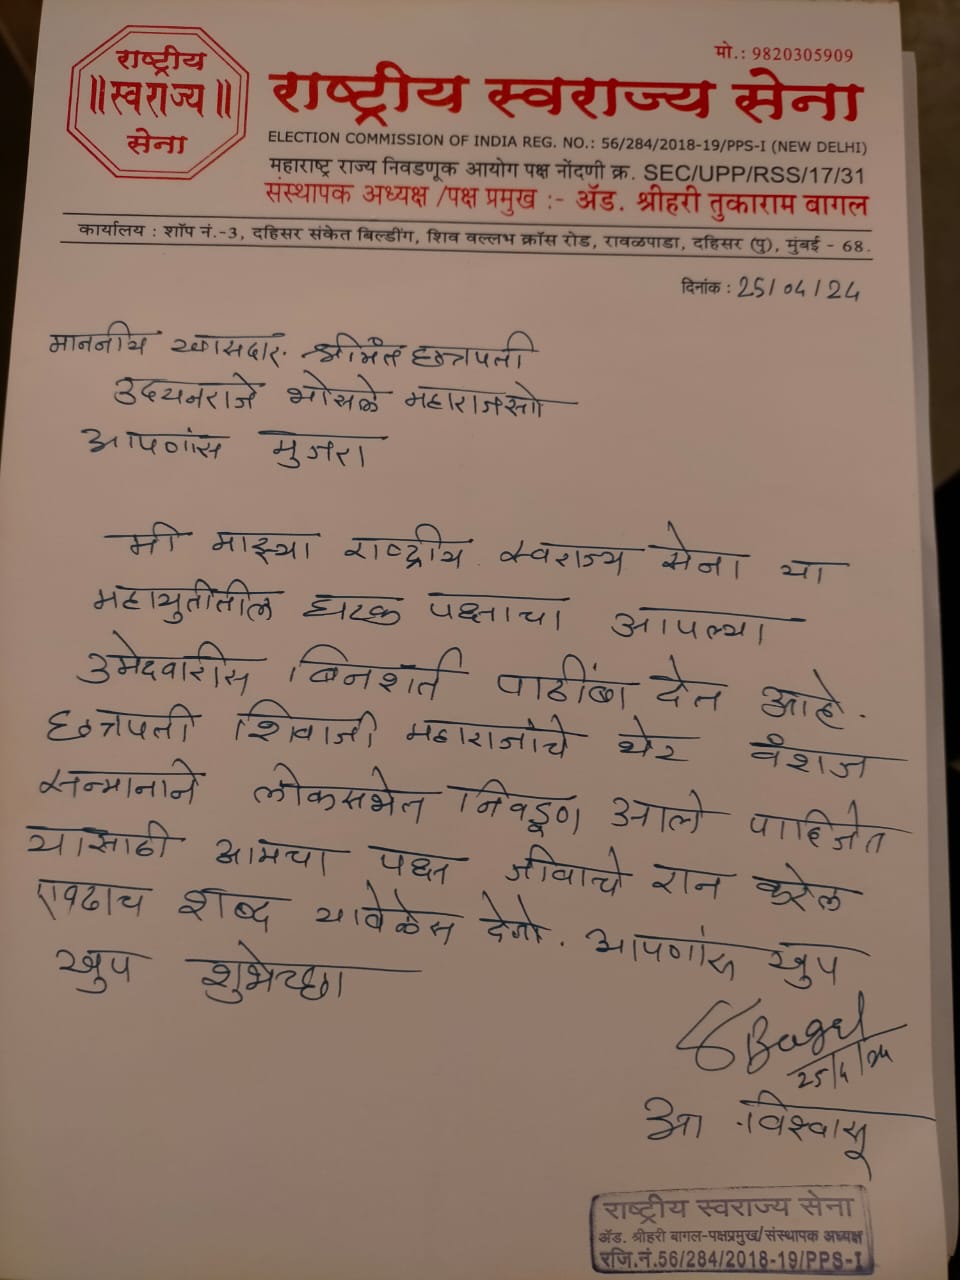 राष्ट्रीय
॥स्वराज्य॥
सेना
मो.: 9820305909
राष्ट्रीय स्वराज्य सेना
ELECTION COMMISSION OF INDIA REG. NO.: 56/284/2018-19/PPS-I (NEW DELHI)
महाराष्ट्र राज्य निवडणूक आयोग पक्ष नोंदणी क्र. SEC/UPP/RSS/17/31
संस्थापक अध्यक्ष /पक्ष प्रमुख :- ॲड. श्रीहरी तुकाराम बागल
कार्यालय : शॉप नं.-3, दहिसर संकेत बिल्डींग, शिव वल्लभ क्रॉस रोड, रावळपाडा, दहिसर (पु), मुंबई - 68.
दिनांक : 25/04/24
माननीय खासदार. श्रीमंत छत्रपती
उदयनराजे भोसळे महाराजसो
आपणांस मुजरा
मी माझ्या राष्ट्रीय स्वराज्य सेना या
महायुतीतील घटक पक्षाचा आपल्या
उमेदवारीस बिनशर्त पाठींबा देत आहे.
छत्रपती शिवाजी महाराजांचे थेर वंशज
सन्मानाने लोकसभेत निवडूण आले पाहिजेत
यासाठी आमचा पक्ष जीवाचे रान करेल
एवढाच शब्द यावेळेस देतो. आपणांस खुप
खुप शुभेच्छा
SBagal
25/4/24
आ. विश्वासू
राष्ट्रीय स्वराज्य सेना
ॲड. श्रीहरी बागल-पक्षप्रमुख/संस्थापक अध्यक्ष
रजि.नं.56/284/2018-19/PPS-I